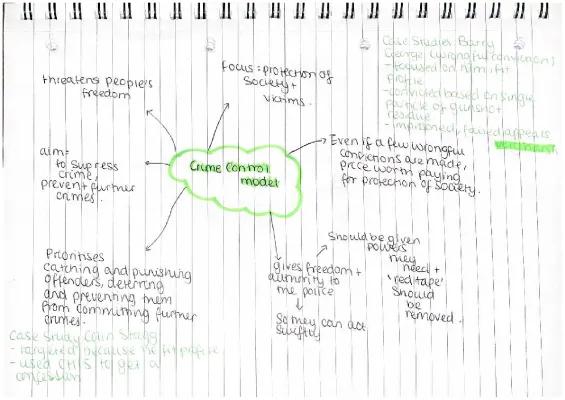 threatens people's
freedom
focus: protection of
society +
victims.
Case Studies Barry
George (wrongful conviction)
- focused on him, fit
profile
- convicted based on single
particle of gunshot
residue
- imprisoned, failed appeals
aim=
to supress
crime,
prevent further
crimes.
Crime Control
model
Even if a few wrongful
convictions are made,
price worth paying
for protection of society.
Prioritises
catching and punishing
offenders, deterring
and preventing them
from committing further
crimes.
gives freedom +
authority to
the police
so they can act
swiftly
should be given
powers
they
need +
'red tape'
should
be
removed.
Case Study Colin Stagg
- targeted because he fit profile
- used to get a
confession